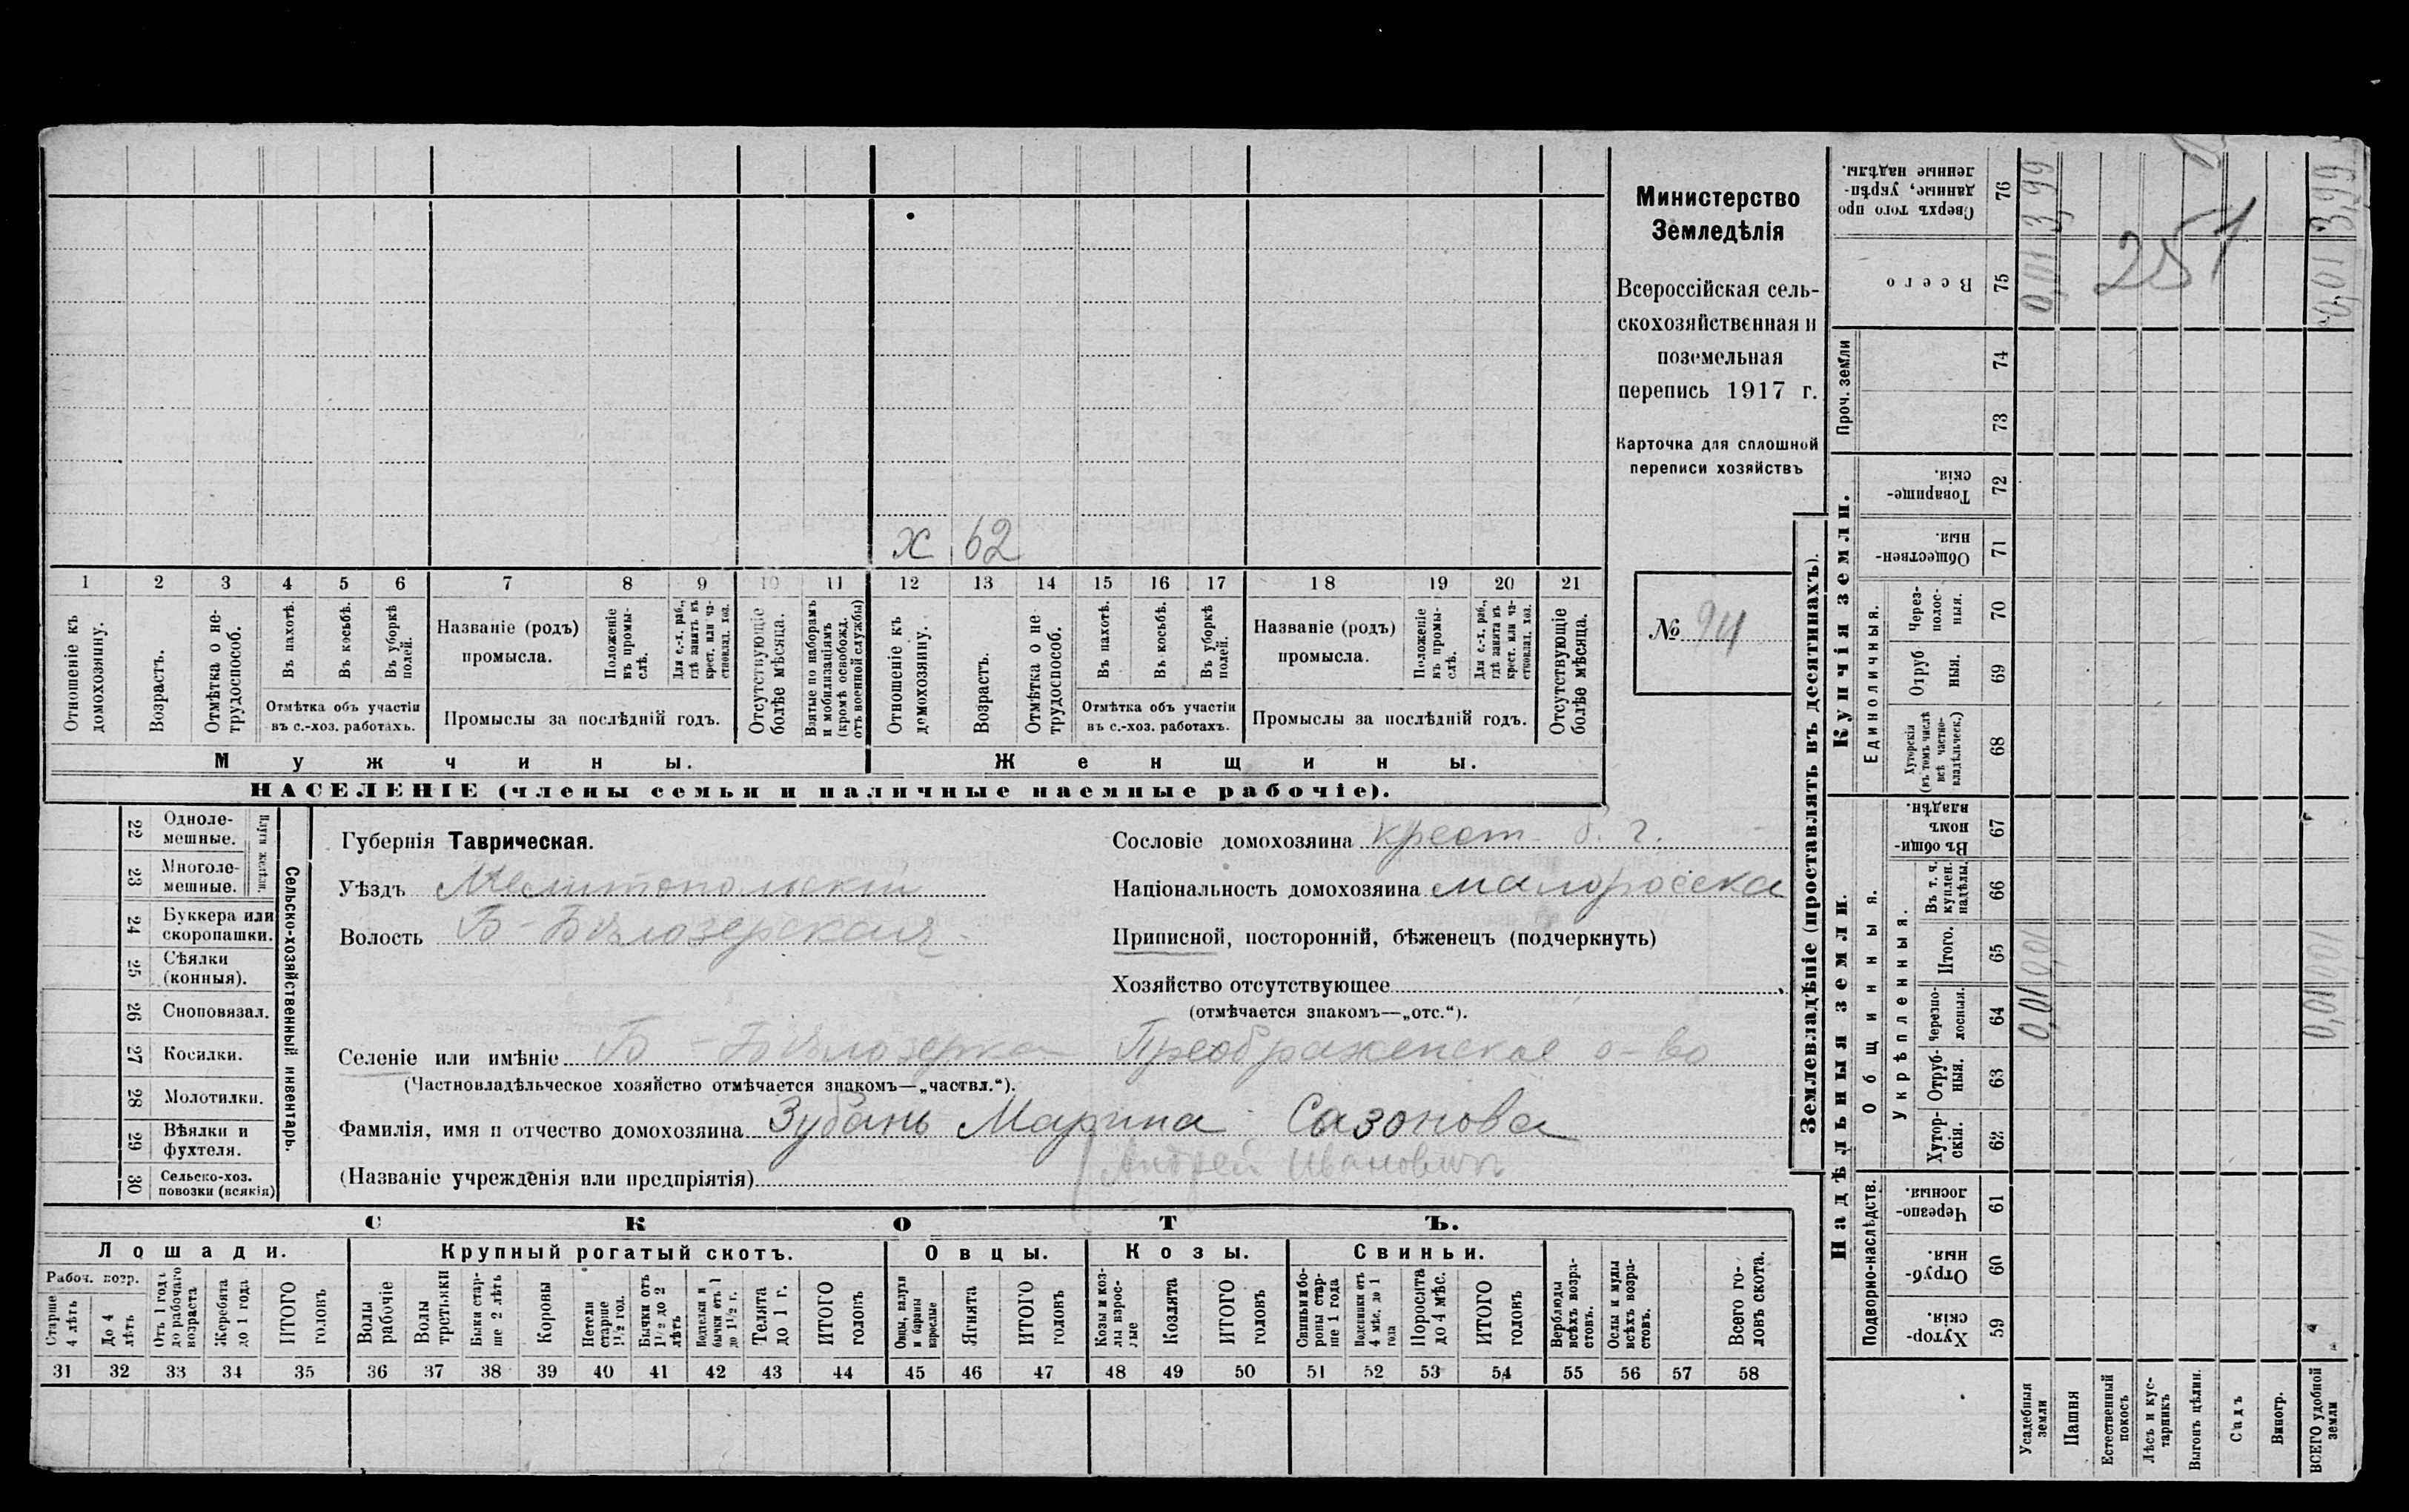 Министерство
Земледѣлія
Всероссійская сель-
скохозяйственная и
поземельная
перепись 1917 г.
Карточка для сплошной
переписи хозяйствъ
№ 94
х 62
1 2 3 4 5 6 7 8 9 10 11 12 13 14 15 16 17 18 19 20 21
Отношеніе къ домохозяину.
Возрастъ.
Отмѣтка о не-трудоспособ.
Въ пахотѣ.
Въ косьбѣ.
Въ уборкѣ полей.
Отмѣтка объ участіи
въ с.-хоз. работахъ.
Названіе (родъ)
промысла.
Положеніе въ промы-слѣ.
Для с.-х. раб., гдѣ занятъ въ крест. или ча-стновлад. хоз.
Промыслы за послѣдній годъ.
Отсутствующіе болѣе мѣсяца.
Взятые по наборамъ и мобилизаціямъ (кромѣ освобожд. отъ военной службы)
Отношеніе къ домохозяину.
Возрастъ.
Отмѣтка о не трудоспособ.
Въ пахотѣ.
Въ косьбѣ.
Въ уборкѣ полей.
Отмѣтка объ участіи
въ с.-хоз. работахъ.
Названіе (родъ)
промысла.
Положеніе въ промы-слѣ.
Для с.-х. раб., гдѣ занята въ крест. или ча-стновлад. хоз.
Промыслы за послѣдній годъ.
Отсутствующіе болѣе мѣсяца.
Мужчины.
Женщины.
НАСЕЛЕНІЕ (члены семьи и наличные наемные рабочіе).
22 Одноле-мешные.
23 Многоле-мешные.
Плуги желѣзн.
24 Буккера или скоропашки.
25 Сѣялки (конныя).
26 Сноповязал.
27 Косилки.
28 Молотилки.
29 Вѣялки и фухтеля.
30 Сельско-хоз. повозки (всякія)
Сельско-хозяйственный инвентарь.
Губернія Таврическая.
Уѣздъ Мелитопольскій
Волость Б-Бѣлозерская
Сословіе домохозяина крест. б. г.
Національность домохозяина малоросска
Приписной, посторонній, бѣженецъ (подчеркнуть)
Хозяйство отсутствующее
(отмѣчается знакомъ—„отс.“).
Селеніе или имѣніе Б-Бѣлозерка Преображенское о-во
(Частновладѣльческое хозяйство отмѣчается знакомъ—„частвл.“).
Фамилія, имя и отчество домохозяина Зубань Марина Сазонова
Андрей Ивановичъ
(Названіе учрежденія или предпріятія)
СКОТЪ.
Лошади.
Крупный рогатый скотъ.
Овцы.
Козы.
Свиньи.
Рабоч. возр.
Старше 4 лѣтъ
До 4 лѣтъ
Отъ 1 года до рабочаго возраста
Жеребята до 1 года
ИТОГО головъ
Волы рабочіе
Волы третьяки
Быки стар-ше 2 лѣтъ
Коровы
Нетели старше 1½ год.
Бычки отъ 1½ до 2 лѣтъ
Телята до 1 г.
ИТОГО головъ
Овцы, валухи и бараны взрослые
Ягнята
ИТОГО головъ
Козы и коз-лы взрос-лые
Козлята
ИТОГО головъ
Свиньи бо-ровы стар-ше 1 года
Подсвинки отъ 4 мѣс. до 1 года
Поросята до 4 мѣс.
ИТОГО головъ
Верблюды всѣхъ возра-стовъ.
Ослы и мулы всѣхъ возра-стовъ.
Всего го-ловъ скота.
31 32 33 34 35 36 37 38 39 40 41 42 43 44 45 46 47 48 49 50 51 52 53 54 55 56 57 58
Землевладѣніе (проставлять въ десятинахъ).
Купчія земли.
Надѣльныя земли.
Сверхъ того про данные, укрѣп-ленные надѣлы. 76
3,99
3,99
Всего 75
0,01
0,01
251
Проч. земли
74
73
Товарище-скія. 72
Обществен-ныя. 71
Единоличныя.
Через-полос-ныя. 70
Отруб ныя. 69
Хуторскія (въ томъ числѣ всѣ частно-владѣльческ.) 68
Общинныя.
Въ общи-номъ владѣн. 67
Укрѣпленныя.
Въ т. ч. куплен. надѣлы. 66
Итого. 65
0,01
0,01
Черезпо-лосныя. 64
0,01
0,01
Отруб-ныя. 63
Хутор-скія. 62
Подворно-наслѣдств.
Черезпо-лосныя. 61
Отруб-ныя. 60
Хутор-скія. 59
Усадебныя земли
Пашня
Естественный покосъ
Лѣсъ и кус-тарникъ
Выгонъ цѣлин.
Садъ
Виногр.
ВСЕГО удобной земли